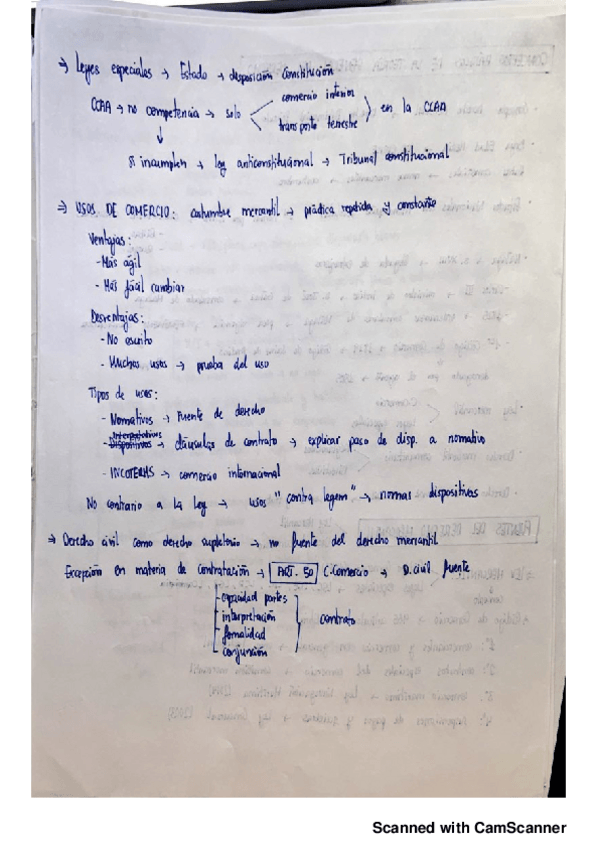 → Leyes especiales → Estado → disposición constitución
CCAA → no competencia → solo < comercio interior
transporte terrestre > en la CCAA
↓
Si incumplen → ley anticonstitucional → Tribunal constitucional
⇒ USOS DE COMERCIO: costumbre mercantil → práctica repetida y constante
Ventajas:
- Más ágil
- Más fácil cambiar
Desventajas:
- No escrito
- Muchos usos → prueba del uso
Tipos de usos:
- Normativos → Fuente de derecho
Interpretativos
- Dispositivos → cláusulas de contrato → explicar paso de disp. a normativo
- INCOTERMS → comercio internacional
No contrario a la ley → usos "contra legem" → normas dispositivas
⇒ Derecho civil como derecho supletorio → no fuente del derecho mercantil
Excepción en materia de contratación → ART. 50 C.Comercio → D.civil fuente
capacidad partes
interpretación
formalidad
conjunción
contrato
Scanned with CamScanner